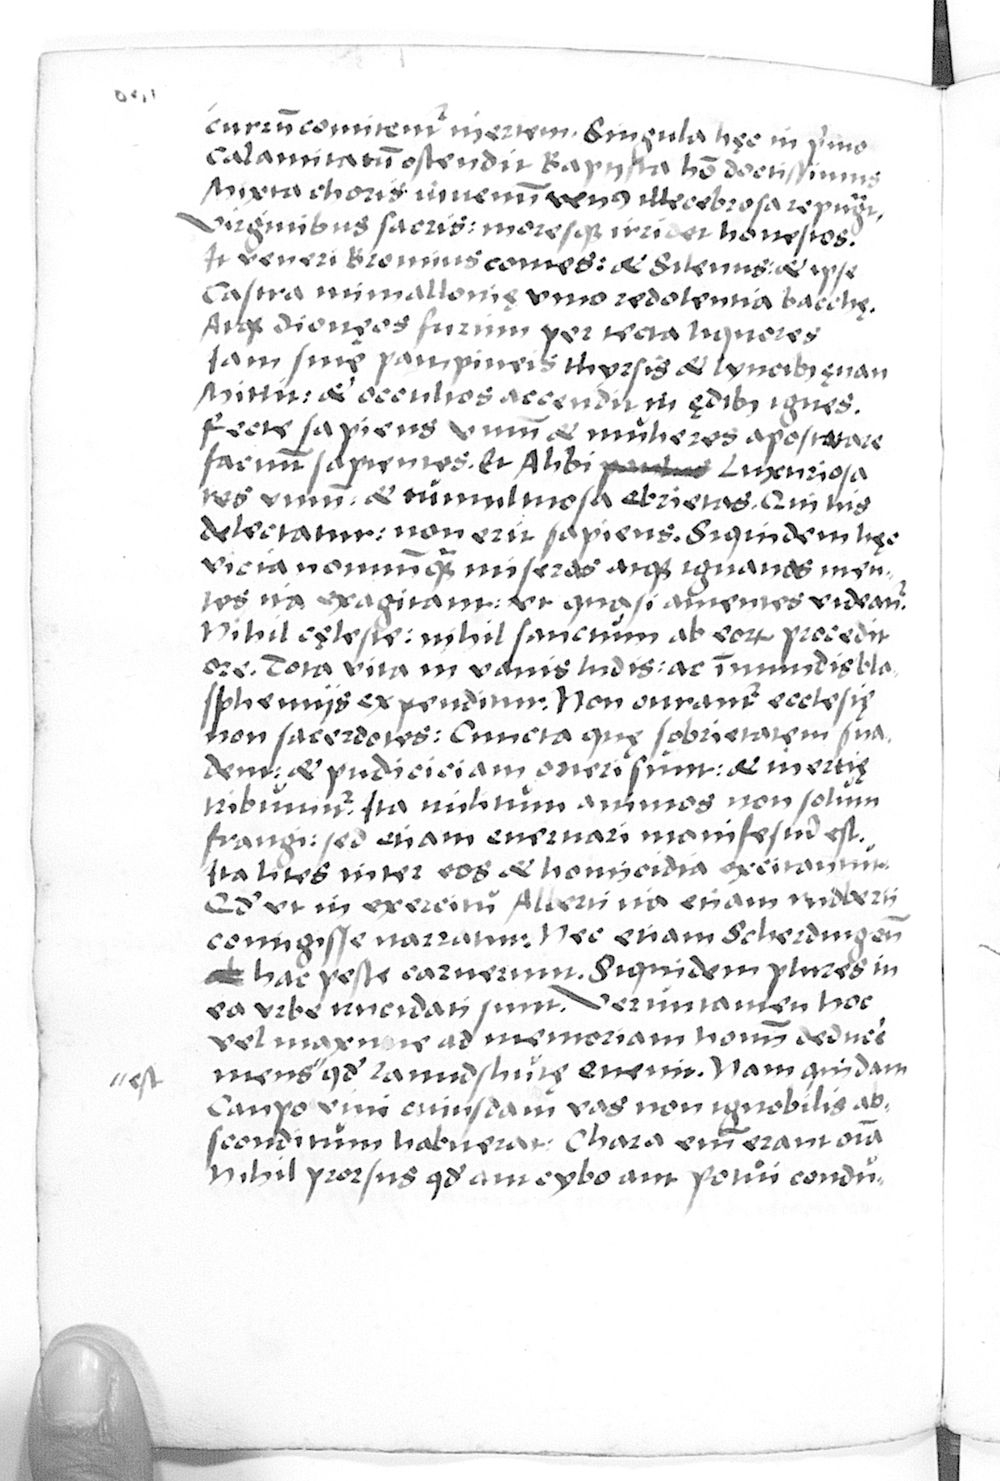 currū comitem̄ inertem. Singula hęc in pͥmo
Calamitatū ostendit Baptista hō doctissimus
Mixta choris iuuenū venꝰ illecebrosa repugt,
Virginibus sacris: moresqꝫ irridet honestos.
It veneri Bromius comes: & Silenus: & ipse
Castra mimallonię vino redolentia bacchę.
Atqꝫ dionęos furtim per tecta liquores
Iam sinę pampineis thyrsis & lyncibꝫ euan
Mittit: & occultos accendit in ędibꝫ ignes.
Recte sapiens vinū & mulieres apostatare
faciūt sapientes. Et Alibi Luxuriosa
res vinū: & tumultuosa ebrietas. Qui his
delectatur: non erit sapiens. Siquidem hęc
vicia nonnūqᷓ miseras atqꝫ ignauas men-
tes ita exagitant: vt quasi amentes videant᷑.
Nihil cęleste: nihil sanctum ab eorꝝ procedit
ore. Tota vita in vanis ludis: ac īmundis bla-
sphemijs expenditur. Non curant᷑ ecclesię
non sacerdotes: Cuncta quę sobrietatem sua-
dent: & pudiciciam oneri sunt: & inertię
tribuunt᷑. Ita militum animos non solum
frangi: sed etiam eneruari manifestū est.
Ita lites inter eos & homicidia excitantur.
Qd̛ vt in exercitu Alberti ita etiam rudberti
contigisse narratur. Nec etiam Scherdingen̄
hac peste caruerunt. Siquidem plures in
ea vrbe trucidati sunt. Veruntamen hoc
vel maxime ad memoriam homīū deducē
mens " qd̛ Lanndshutę euenit. Nam quidam
"est
Caupo vini cuiusdam vas non ignobilis ab-
sconditum habuerat: Chara em̄ erant oīa
Nihil prorsus qd̛ aut cybo aut potui condu-